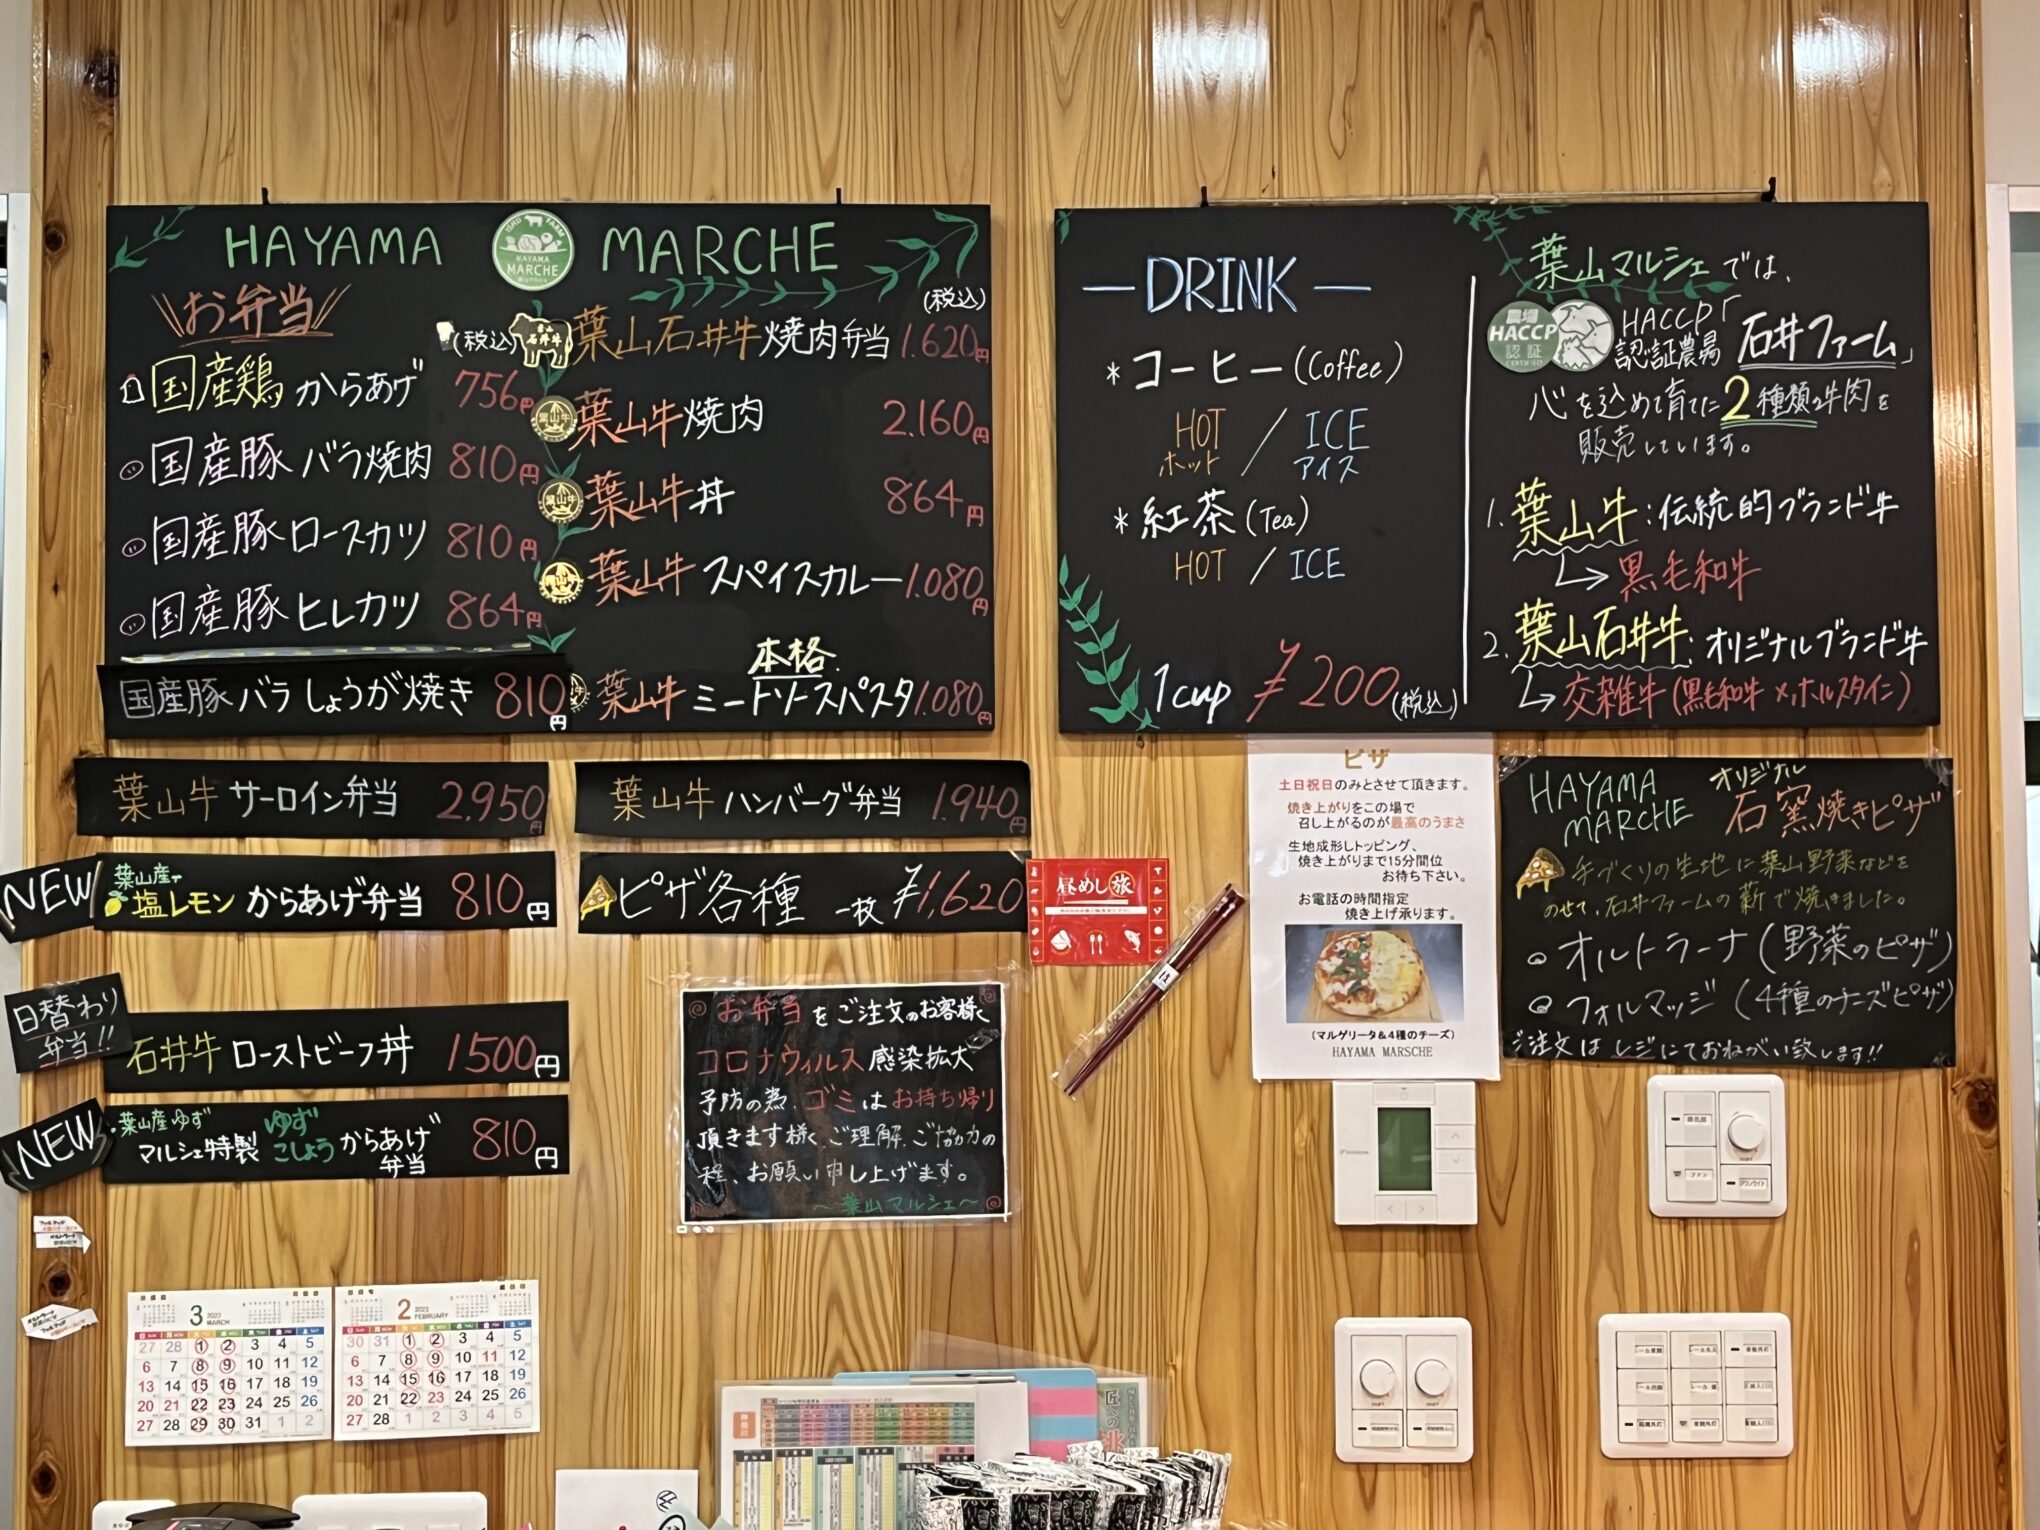 HAYAMA MARCHE
ISHII FARM
HAYAMA
MARCHE
お弁当
(税込)
国産鶏 からあげ 756円
国産豚 バラ焼肉 810円
国産豚 ロースカツ 810円
国産豚 ヒレカツ 864円
国産豚 バラ しょうが焼き 810円
(税込)
葉山
石井牛
葉山石井牛焼肉弁当 1.620円
葉山牛焼肉 2.160円
葉山牛丼 864円
葉山牛 スパイスカレー 1.080円
本格
葉山牛 ミートソースパスタ 1.080円
葉山牛 サーロイン弁当 2.950円
葉山牛 ハンバーグ弁当 1.940円
NEW
葉山産
塩レモン からあげ弁当 810円
ピザ各種 一枚 ¥1,620
日替わり
弁当!!
石井牛 ローストビーフ丼 1500円
NEW
葉山産ゆず
マルシェ特製 ゆず
こしょう からあげ
弁当 810円
お弁当をご注文のお客様へ
コロナウィルス感染拡大
予防の為、ゴミはお持ち帰り
頂きます様、ご理解、ご協力の
程、お願い申し上げます。
〜葉山マルシェ〜
昼めし旅
— DRINK —
* コーヒー (Coffee)
HOT / ICE
ホット / アイス
* 紅茶 (Tea)
HOT / ICE
1cup ¥200(税込)
葉山マルシェでは、
農場
HACCP
認証
CERTIFIED
HACCP「
認証農場 石井ファーム」
心を込めて育てた2種類の牛肉を
販売しています。
1. 葉山牛:伝統的ブランド牛
黒毛和牛
2. 葉山石井牛:オリジナルブランド牛
交雑牛(黒毛和牛×ホルスタイン)
ピザ
土日祝日のみとさせて頂きます。
焼き上がりをこの場で
召し上がるのが最高のうまさ
生地成形しトッピング、
焼き上がりまで15分間位
お待ち下さい。
お電話の時間指定
焼き上げ承ります。
(マルゲリータ&4種のチーズ)
HAYAMA MARSCHE
HAYAMA
MARCHE
オリジナル
石窯焼きピザ
手づくりの生地に葉山野菜などを
のせて、石井ファームの薪で焼きました。
オルトラーナ (野菜のピザ)
フォルマッジ (4種のチーズピザ)
ご注文はレジにておねがい致します!!
ファン
ダウンライト
3 2022
MARCH
SUN MON TUE WED THU FRI SAT
27 28 1 2 3 4 5
6 7 8 9 10 11 12
13 14 15 16 17 18 19
20 21 22 23 24 25 26
27 28 29 30 31 1 2
2 2022
FEBRUARY
SUN MON TUE WED THU FRI SAT
30 31 1 2 3 4 5
6 7 8 9 10 11 12
13 14 15 16 17 18 19
20 21 22 23 24 25 26
27 28 1 2 3 4 5
匠への